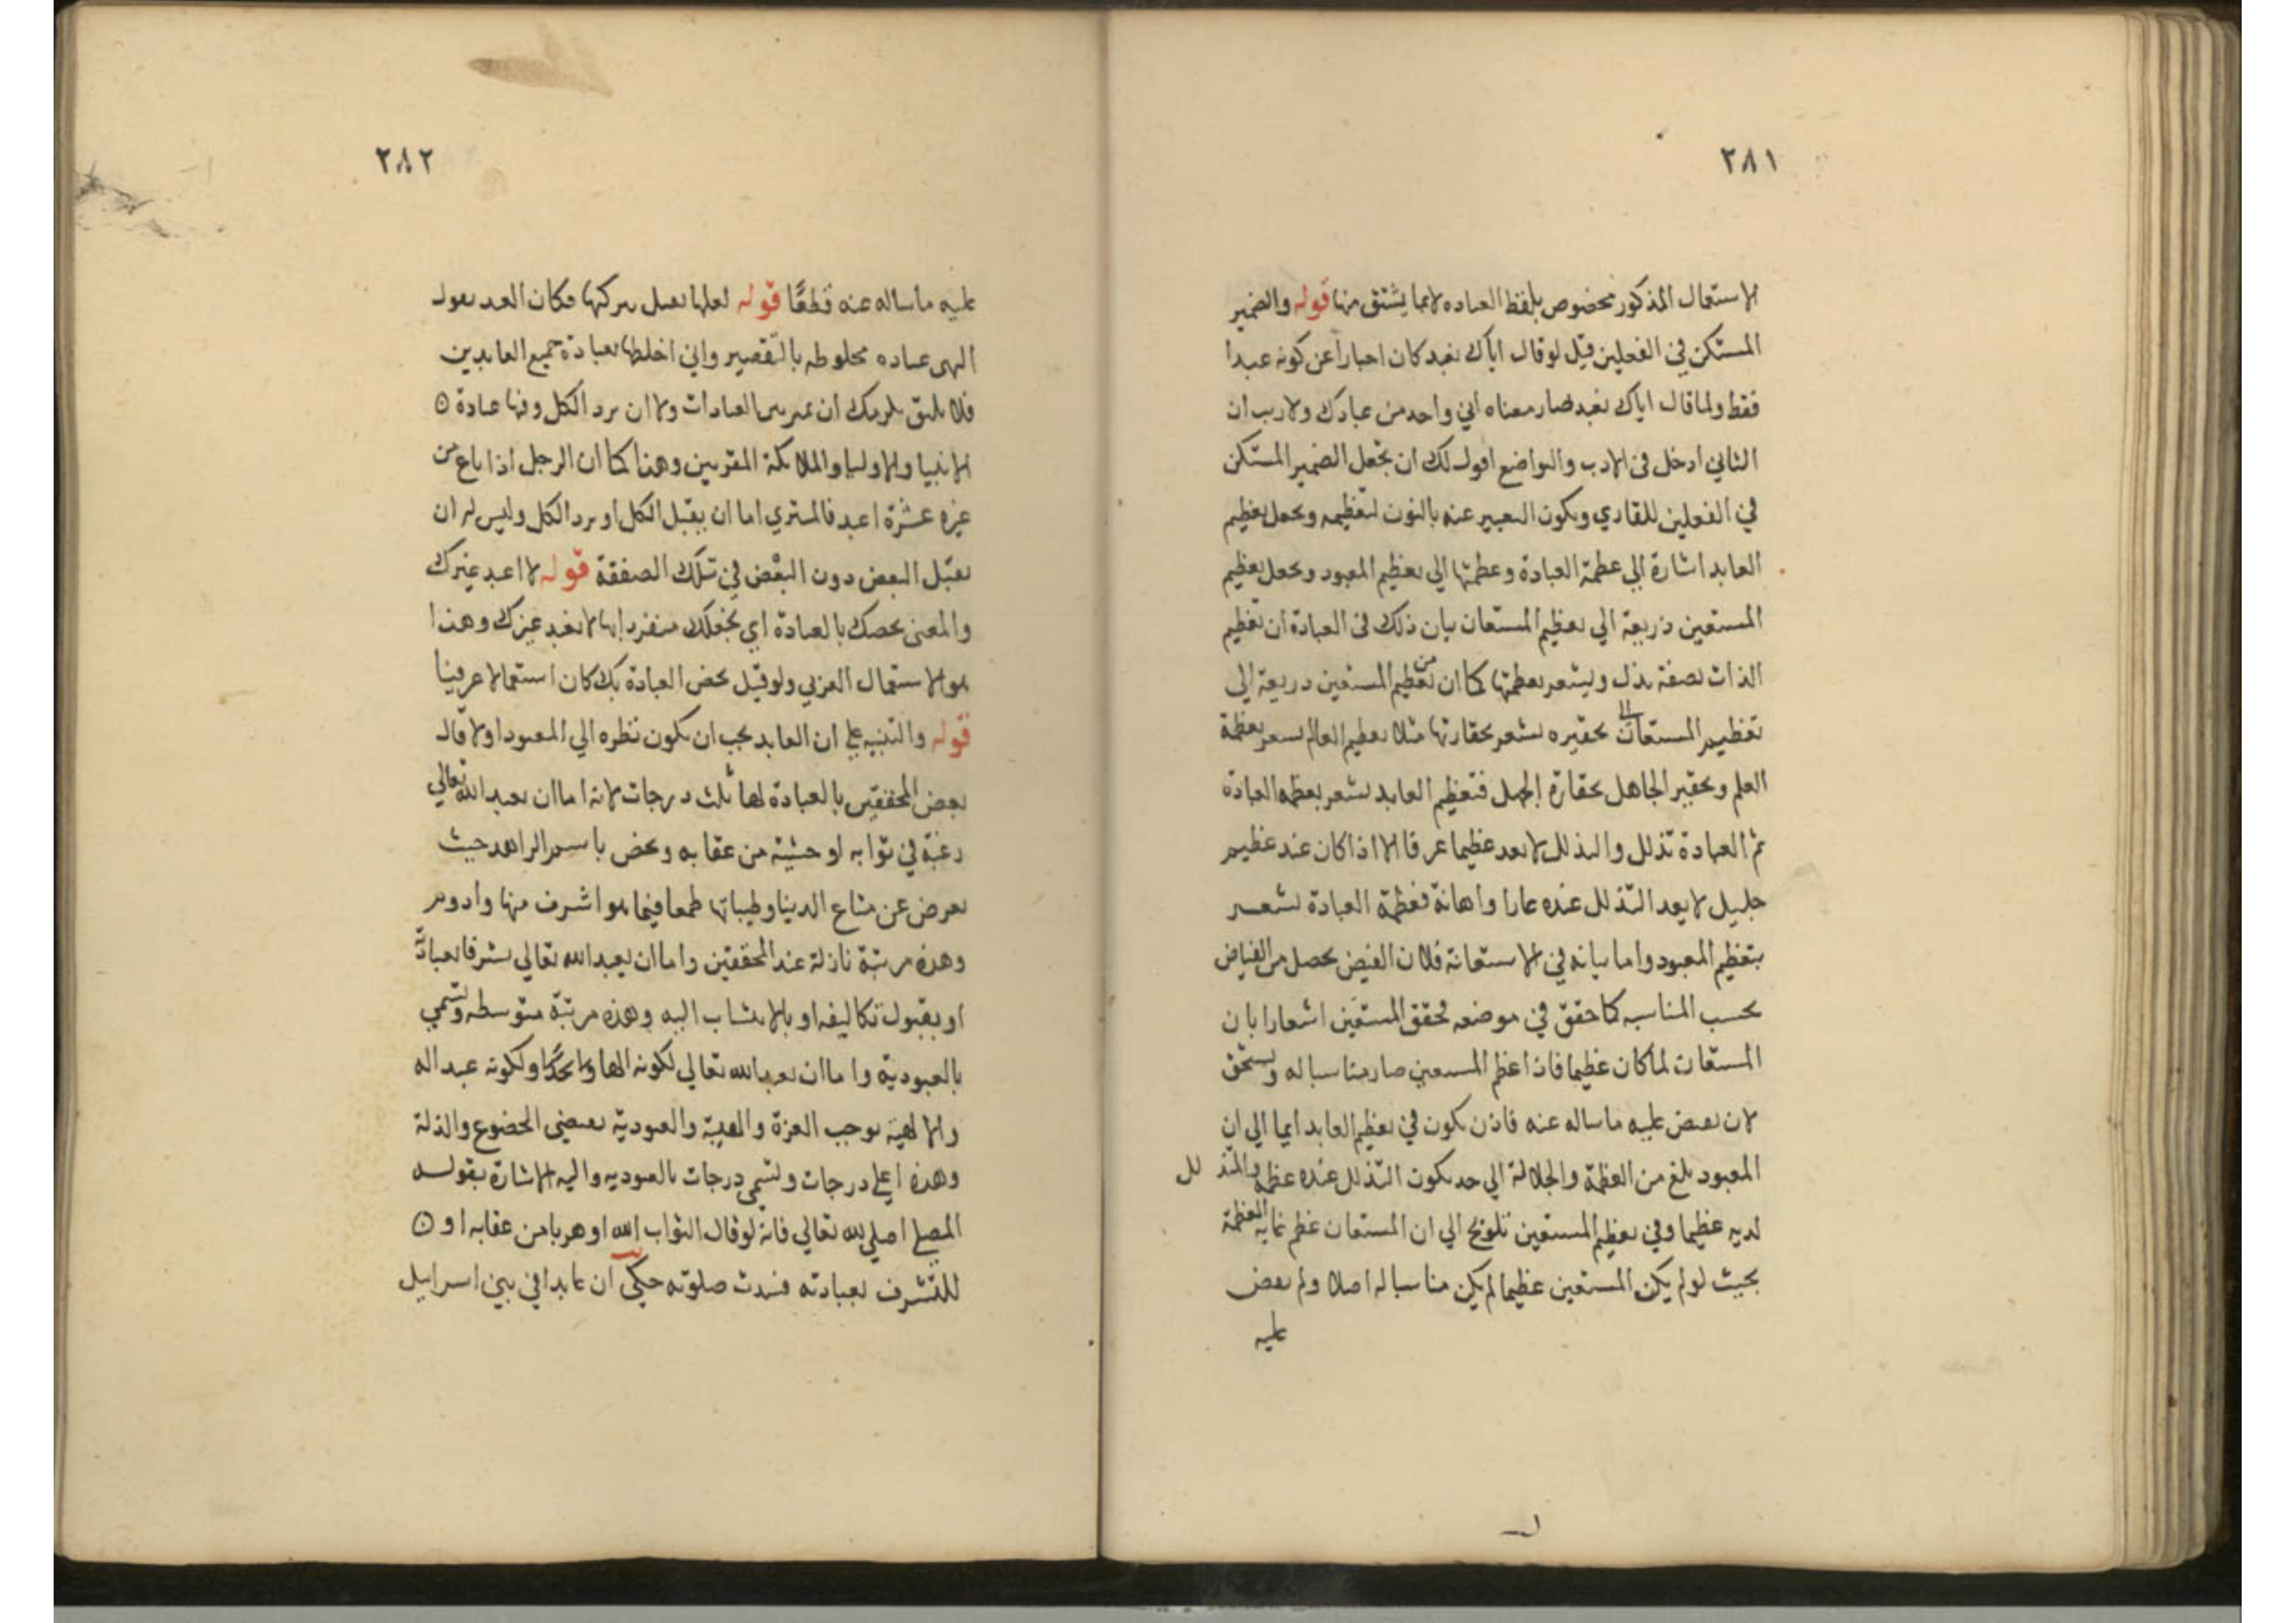 ٢٨١
الاستعمال المذكور مخصوص بلفظ العباده لا بما يشتق منها قوله والضمير
المستكن في الفعلين قيل لو قال اياك نعبد كان اخباراً عن كونه عبدا
فقط ولما قال اياك نعبد صار معناه اني واحد من عبادك ولا ريب ان
الثاني ادخل في الادب والتواضع اقول لك ان تجعل الضمير المستكن
في الفعلين للقاري ويكون التعبير عنه بالنون لتعظيمه ويجعل تعظيم
العابد اشارة الي عظمة العبادة وعظمتها الي تعظيم المعبود ويجعل تعظيم
المستعين ذريعة الي تعظيم المستعان بيان ذلك في العبادة ان تعظيم
الذات بصفة يدل ويشعر بعظمتها كما ان من تعظيم المستعين دريعة الي
تعظيم المستعان تحقيره يشعر بحقارتها مثلا تعظيم العالم يشعر بعظمة
العلم وتحقير الجاهل بحقارة الجهل فتعظيم العابد يشعر بعظمه العبادة
ثم العبادة تذلل والتذلل لا يعد عظيما عرفا الا اذا كان عند عظيم
جليل لا يعد التذلل عنده عارا واهانة فعظمة العبادة تشعر
بتعظيم المعبود واما بيانه في الاستعانة فلان الفيض يحصل من الفياض
بحسب المناسبه كما حقق في موضعه فحقق المستعين اشعارا بان
المستعان لما كان عظيما فاذا عظم المستعين صار مناسبا له ويستحق
لان يفيض عليه ما ساله عنه فاذن يكون في تعظيم العابد ايما الي ان
المعبود بلغ من العظمة والجلالة الي حد يكون التذلل عنده عظمة والتذ لل
لديه عظيما وفي تعظيم المستعين تلويح الي ان المستعان عظم غاية العظمة
بحيث لو لم يكن المستعين عظيما لم يكن مناسبا له اصلا ولم يفض
عليه
٢٨٢
عليه ما ساله عنه قطعًا قوله لعلها تقبل ببركتها فكان العبد يقول
الهي عباده مخلوطه بالتقصير واني اخلطها بعبادة جميع العابدين
فلا يليق بكرمك ان تميز بين العبادات ولا ان ترد الكل وفيها عبادة
الانبيا والاوليا والملائكة المقربين وهذا كما ان الرجل اذا باع من
غيره عشرة اعبد فالمشتري اما ان يقبل الكل او يرد الكل وليس له ان
يقبل البعض دون البعض في تلك الصفقة قوله لا اعبد غيرك
والمعنى نخصك بالعبادة اي نجعلك منفردا بها لا نعبد غيرك وهذا
هو الاستعمال العربي ولو قيل نخص العبادة بك كان استعمالا عرفيا
قوله والتنبيه علي ان العابد يجب ان يكون نظره الي المعبود اولا قال
بعض المحققين بالعبادة لها ثلث درجات لانه اما ان يعبد الله تعالي
رغبة في ثوابه او خشية من عقابه ويخص باسم الزاهد حيث
يعرض عن متاع الدينا وطيباتها طمعا فيما هو اشرف منها وادوم
وهذه مرتبة نازلة عند المحققين واما ان يعبد الله تعالي تشرفا بعبادته
او بقبول تكاليفه او بالانتساب اليه وهذه مرتبة متوسطه وتسمي
بالعبودية واما ان يعبد الله تعالي لكونه الها ولكونه عبد اله
والالهية توجب العزة والهيبة والعبودية تقتضي الخضوع والذلة
وهذه اعلي درجات وتسمي درجات بالعبوديه واليه الاشارة بقوله
المصلي اصلي لله تعالي فانه لو قال الثواب الله او هربا من عقابه او
للتشرف بعبادته فسدت صلوته حكي ان عابدا في بني اسرايل